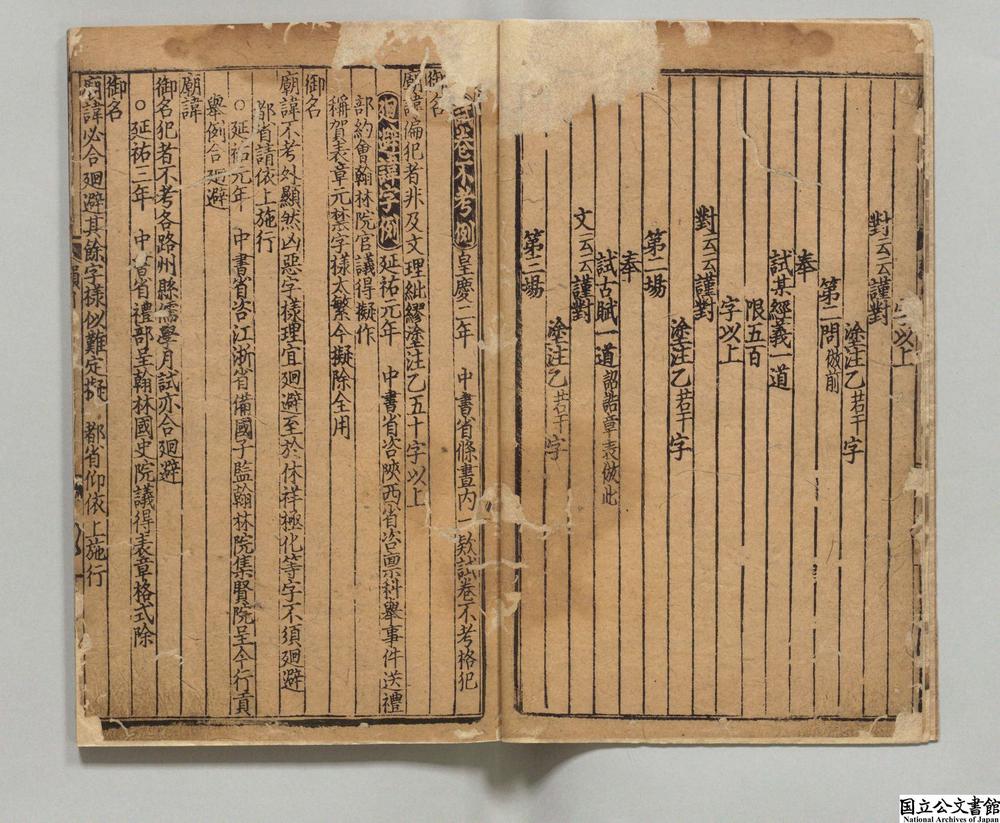 字以上
對云云謹對
塗注乙若干字
第二問倣前
奉
試某經義一道
限五百
字以上
對云云謹對
塗注乙若干字
第二場
奉
試古賦一道詔誥章表倣此
文云云謹對
塗注乙若干字
第三場
試卷不考例皇慶二年 中書省條畫內一欵試卷不考格犯
御名
廟諱偏犯者非及文理紕繆塗注乙五十字以上
廻避諱字例延祐元年 中書省咨陝西省咨禀科舉事件送禮
部約會翰林院官議得擬作
稱賀表章元禁字樣太繁今擬除全用
御名
廟諱不考外顯然凶惡字樣理宜廻避至於休祥極化等字不須廻避
都省請依上施行
○延祐元年 中書省咨江浙省備國子監翰林院集賢院呈今行貢
舉例合廻避
廟諱
御名犯者不考各路州縣儒學月試亦合廻避
○延祐三年 中書省禮部呈翰林國史院議得表章格式除
御名
廟諱必合廻避其餘字樣似難定擬 都省仰依上施行
韻
国立公文書館
National Archives of Japan